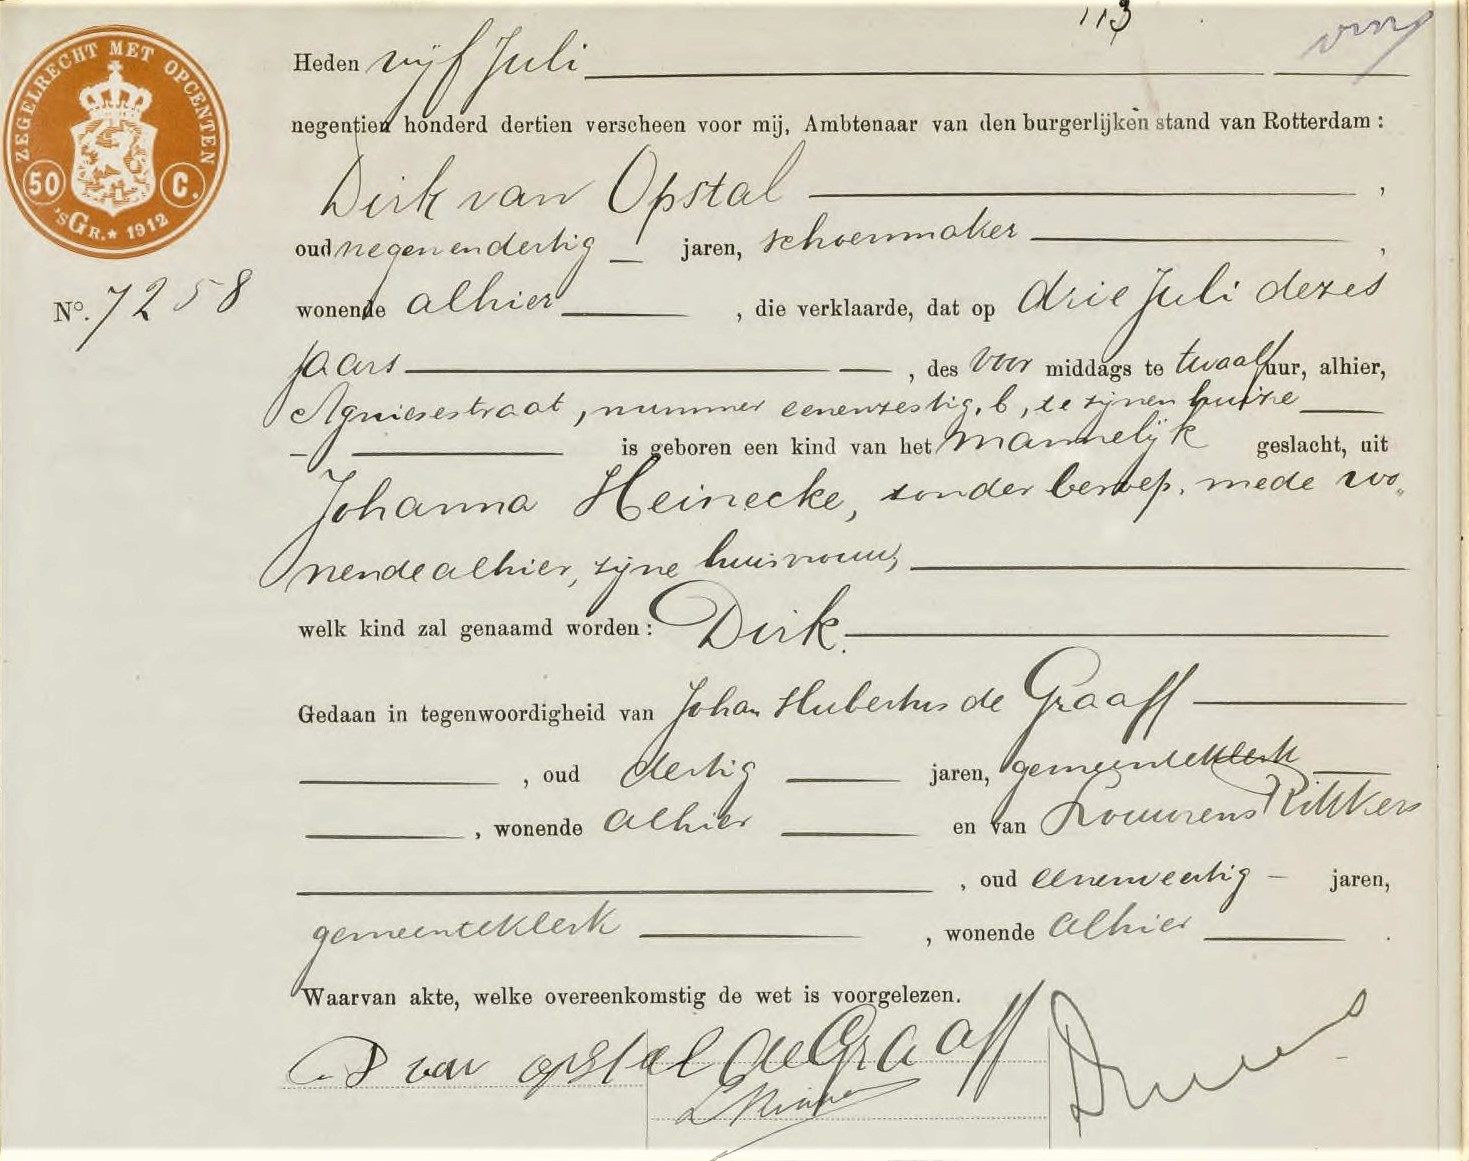 113
ZEGELRECHT MET OPCENTEN
50 C.
'sGr. * 1912
Heden vijf Juli
negentien honderd dertien verscheen voor mij, Ambtenaar van den burgerlijken stand van Rotterdam :
Dirk van Opstal ,
oud negenendertig jaren, schoenmaker ,
No. 7258
wonende alhier , die verklaarde, dat op drie Juli dezes
jaars , des voor middags te twaalf uur, alhier,
Agniesestraat, nummer eenenzestig, b, te zijnen huize
is geboren een kind van het mannelijk geslacht, uit
Johanna Heinecke, zonder beroep, mede wo„
nende alhier, zijne huisvrouw,
welk kind zal genaamd worden : Dirk.
Gedaan in tegenwoordigheid van Johan Hubertus de Graaff
, oud dertig jaren, gemeenteklerk
, wonende alhier en van Lourens Rikkers
, oud eenenveertig – jaren,
gemeenteklerk , wonende alhier .
Waarvan akte, welke overeenkomstig de wet is voorgelezen.
D van opstal de Graaff